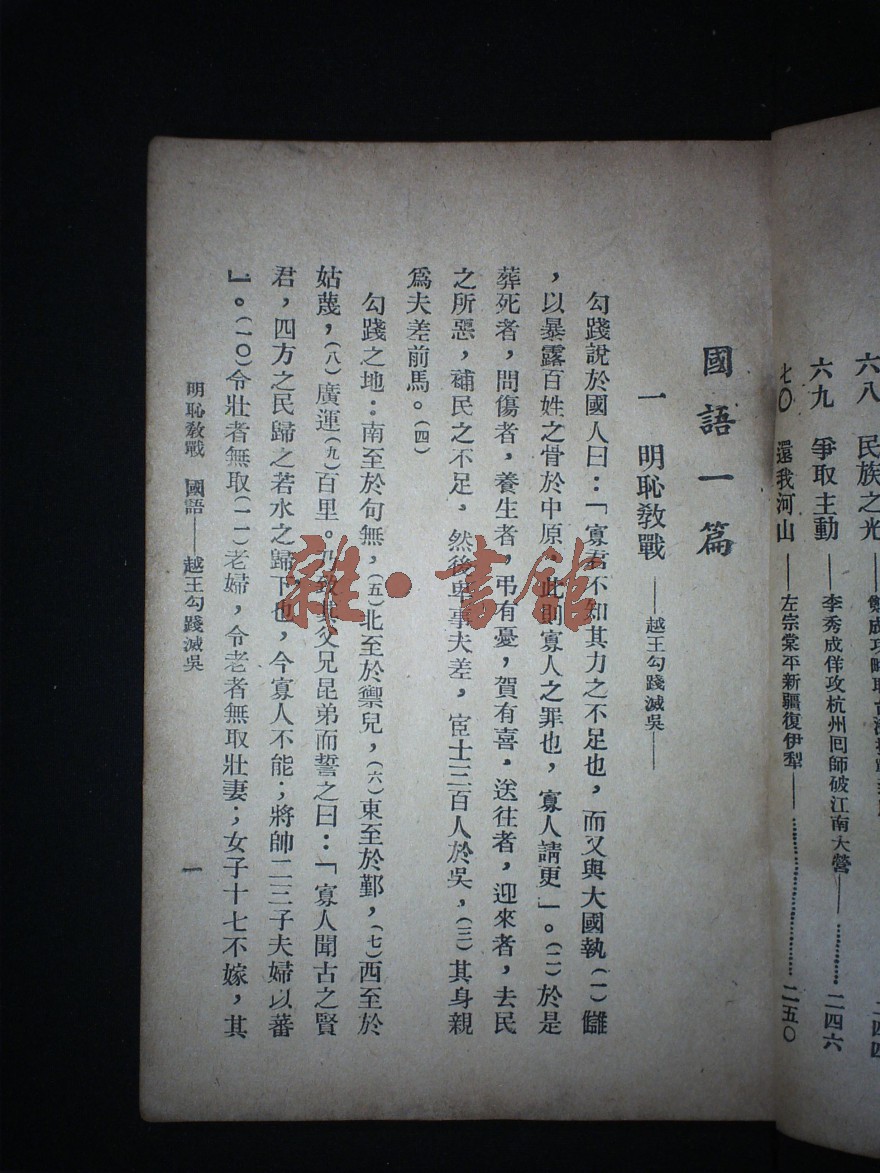 六八　民族之光
六九　爭取主動　——李秀成佯攻杭州囘師破江南大營——………二四六
七〇　還我河山　——左宗棠平新疆復伊犁——………………二五〇
國語一篇
一　明恥敎戰　——越王勾踐滅吳——
勾踐說於國人曰：「寡君不知其力之不足也，而又與大國執（一）讎
，以暴露百姓之骨於中原，此則寡人之罪也，寡人請更」。（二）於是
葬死者，問傷者，養生者，弔有憂，賀有喜．送往者，迎來者，去民
之所惡，補民之不足．然後卑事夫差，宦士三百人於吳，（三）其身親
爲夫差前馬。（四）
勾踐之地：南至於句無，（五）北至於禦兒，（六）東至於鄞，（七）西至於
姑蔑，（八）廣運（九）百里。乃致其父兄昆弟而誓之曰：「寡人聞古之賢
君，四方之民歸之若水之歸下也，今寡人不能；將帥二三子夫婦以蕃
」。（一〇）令壯者無取（一一）老婦，令老者無取壯妻；女子十七不嫁，其
明恥敎戰　國語——越王勾踐滅吳
一
雜·書館